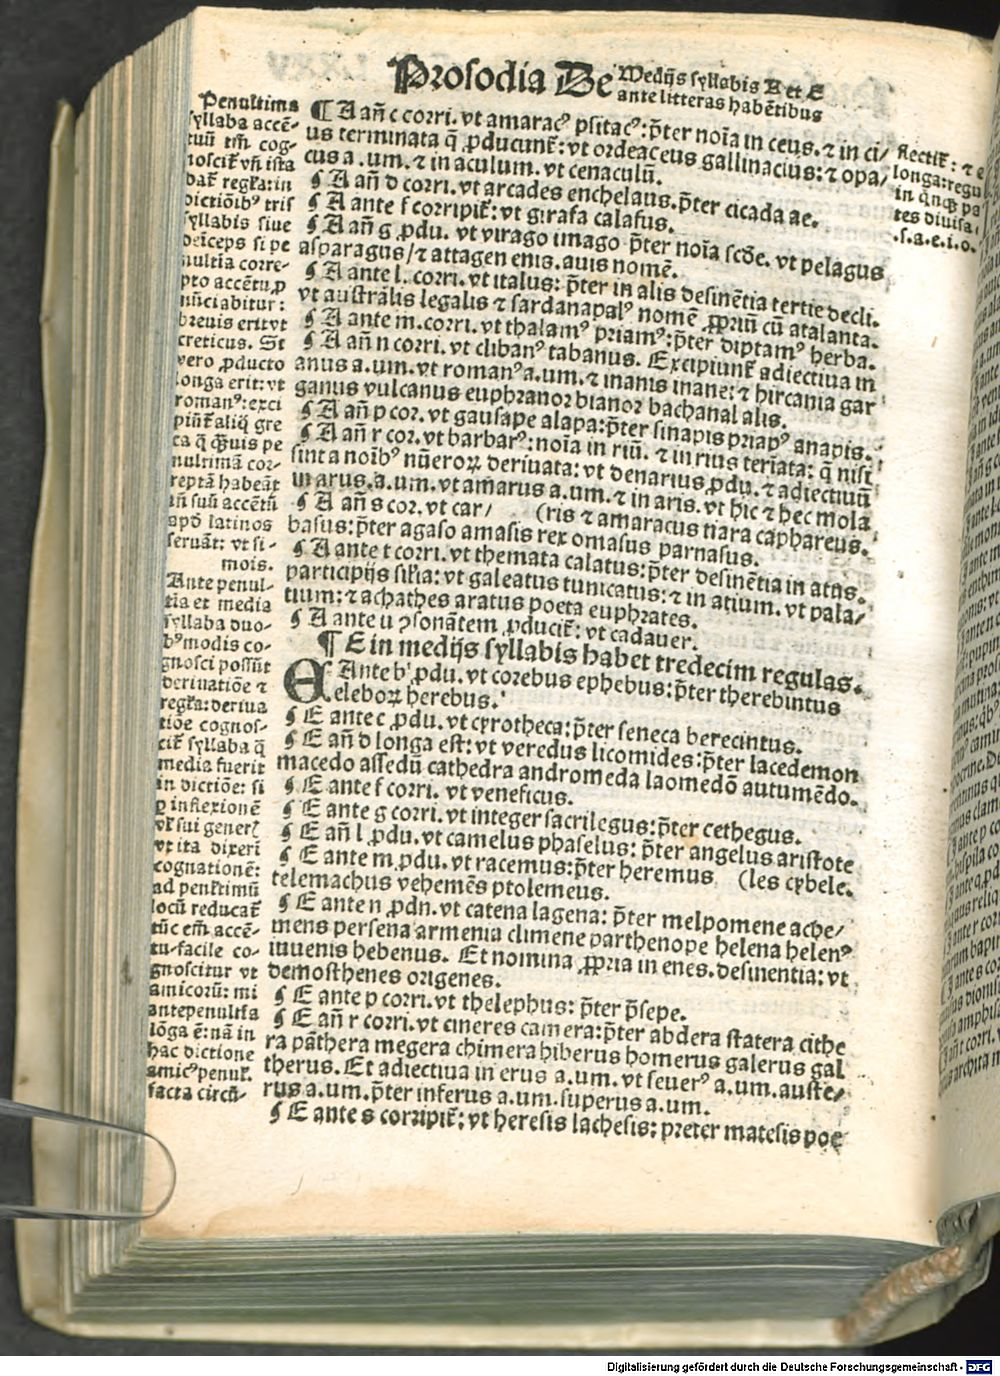 Prosodia De
Medijs syllabis A et E
ante litteras habētibus
Penultima
syllaba accē-
tuū tm̄ cog-
noscit᷑ vn̄ ista
dat᷑ regl̄a: in
dictiōib⁹ tris
syllabis siue
deīceps si pe
nultīa corre-
pto accētu ꝓ
nūciabitur:
breuis erit vt
creticus. Si
vero ꝓducto
longa erit: vt
roman⁹: exci
piūt᷑ aliq̄ gre
ca q̄ q̄uis pe
nultimā cor-
reptā habeāt
in̄ suū accētū
apd̄ latinos
seruāt: vt si-
mois.
Ante penul-
tīa et media
syllaba duo-
b⁹ modis co-
gnosci possūt
deriuatiōe ⁊
regl̄a: deriua
tiōe cognos-
cit᷑ syllaba q̄
media fuerit
in dictiōe: si
ꝑ inflexionē
vl̄ sui generis
vt ita dixerī
cognationē:
ad penl̄timū
locū reducat᷑
tūc em̄ accē-
tu facile co-
gnoscitur vt
amicorū: mi
antepenultīa
lōga ē: nā in
hac dictione
amic⁹ penul̄.
facta circū-
¶ A an̄ c corri. vt amarac⁹ psitac⁹: p̄ter noīa in ceus. ⁊ in ci/
us terminata q̄ ꝓducunt᷑: vt ordeaceus gallinacius: ⁊ opa/
cus a. um. ⁊ in aculum. vt cenaculū.
¶ A an̄ d corri. vt arcades enchelaus. p̄ter cicada ae.
¶ A ante f corripit᷑: vt girafa calafus.
¶ A an̄ g ꝓdu. vt virago imago p̄ter noīa scd̄e. vt pelagus
asparagus/ ⁊ attagen enis. auis nomē.
¶ A ante l. corri. vt italus: p̄ter in alis desinētia tertie decli.
vt australis legalis ⁊ sardanapal⁹ nomē ꝓpriū cū atalanta.
¶ A ante m. corri. vt thalam⁹ priam⁹: p̄ter diptam⁹ herba.
¶ A an̄ n corri. vt cliban⁹ tabanus. Excipiunt᷑ adiectiua in
anus a. um. vt roman⁹ a. um. ⁊ inanis inane: ⁊ hircania gar
ganus vulcanus euphranor bianor bachanal alis.
¶ A an̄ p cor. vt gausape alapa: p̄ter sinapis priap⁹ anapis.
¶ A an̄ r cor. vt barbar⁹: noīa in riū. ⁊ in rius teriata: q̄ nisi
sint a noīb⁹ nūeroꝝ deriuata: vt denarius ꝓdu. ⁊ adiectiuū
in arus. a. um. vt amarus a. um. ⁊ in aris. vt hic ⁊ hec mola
¶ A an̄ s cor. vt car/ (ris ⁊ amaracus tiara caphareus.
basus: p̄ter agaso amasis rex omasus parnasus.
¶ A ante t corri. vt themata calatus: p̄ter desinētia in atus.
participijs sil̄ia: vt galeatus tunicatus: ⁊ in atium. vt pala/
tium: ⁊ achathes aratus poeta euphrates.
¶ A ante u ꝯsonātem ꝓducit᷑: vt cadauer.
¶ E in medijs syllabis habet tredecim regulas.
E Ante b ꝓdu. vt corebus ephebus: p̄ter therebintus
eleboꝝ herebus.
¶ E ante c ꝓdu. vt cyrotheca: p̄ter seneca berecintus.
¶ E an̄ d longa est: vt veredus licomides: p̄ter lacedemon
macedo assedū cathedra andromeda laomedō autumēdo.
¶ E ante f corri. vt veneficus.
¶ E ante g corri. vt integer sacrilegus: p̄ter cethegus.
¶ E an̄ l ꝓdu. vt camelus phaselus: p̄ter angelus aristote
¶ E ante m ꝓdu. vt racemus: p̄ter heremus (les cybele.
telemachus vehemēs ptolemeus.
¶ E ante n ꝓdu. vt catena lagena: p̄ter melpomene ache/
mens persena armenia climene parthenope helena helen⁹
iuuenis hebenus. Et nomina ꝓpria in enes. desinentia: vt
demosthenes origenes.
¶ E ante p corri. vt thelephus: p̄ter p̄sepe.
¶ E an̄ r corri. vt cineres camera: p̄ter abdera statera cithe
ra pāthera megera chimera hiberus homerus galerus gal
therus. Et adiectiua in erus a. um. vt seuer⁹ a. um. auste/
rus a. um. p̄ter inferus a. um. superus a. um.
¶ E ante s corripit᷑: vt heresis lachesis: preter matesis poe
flectit᷑: ⁊ e
longa: regu
in qn̄qꝫ pa
tes diuisa.
.s. a. e. i. o.
Digitalisierung gefördert durch die Deutsche Forschungsgemeinschaft - DFG